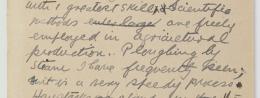 with / greatest skill & scientific
methods are freely
employed in agricultural
production. Ploughing by
steam I have frequently seen;
it is a very speedy process.